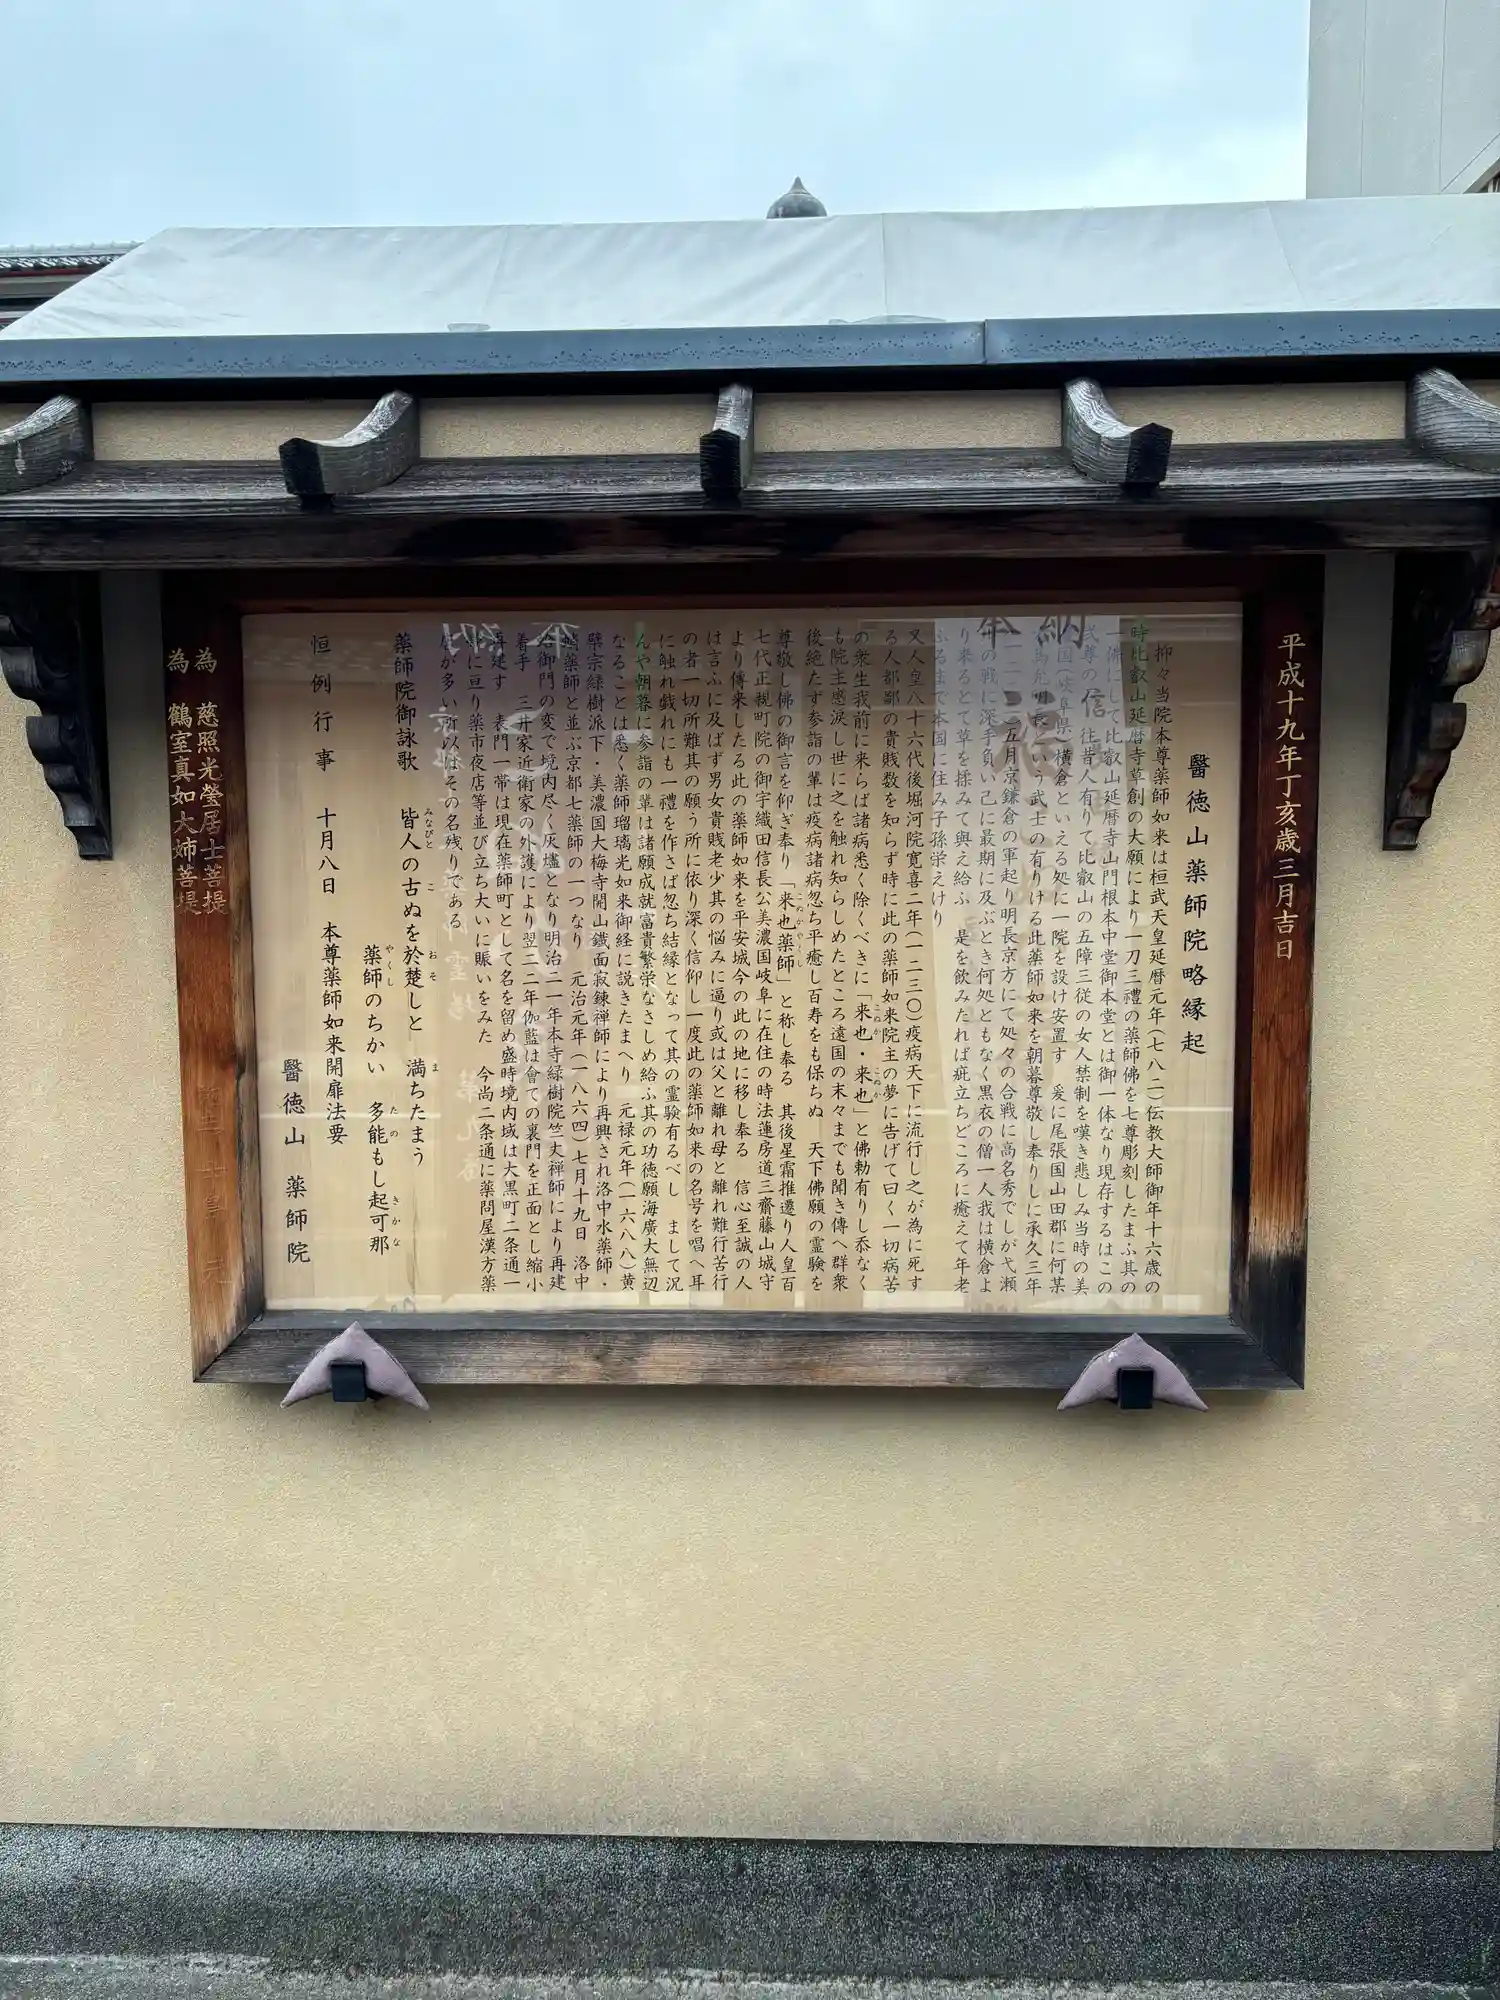 平成十九年丁亥歳三月吉日
醫徳山薬師院略縁起
抑々当院本尊薬師如来は桓武天皇延暦元年(七八二)伝教大師御年十六歳の
時比叡山延暦寺草創の大願により一刀三禮の薬師佛を七尊彫刻したまふ其の
一佛にして比叡山延暦寺山門根本中堂御本堂とは御一体なり現存するはこの
弐尊の 往昔人有りて比叡山の五障三従の女人禁制を嘆き悲しみ当時の美
国(岐阜県)横倉といえる処に一院を設け安置す 爰に尾張国山田郡に何某
馬允明長という武士の有りける此薬師如来を朝暮尊敬し奉りしに承久三年
五月京鎌倉の軍起り明長京方にて処々の合戦に高名秀でしが弋瀬
の戦に深手負い己に最期に及ぶとき何処ともなく黒衣の僧一人我は横倉よ
り来るとて草を揉みて與え給ふ 是を飲みたれば疵立ちどころに癒えて年老
ふる迄で本国に住み子孫栄えけり
又人皇八十六代後堀河院寛喜二年(一二三〇)疫病天下に流行し之が為に死す
る人都鄙の貴賎数を知らず時に此の薬師如来院主の夢に告げて曰く一切病苦
の衆生我前に来らば諸病悉く除くべきに「来也・来也」と佛勅有りし忝なく
も院主感涙し世に之を触れ知らしめたところ遠国の末々までも聞き傳へ群衆
後絶たず参詣の輩は疫病諸病忽ち平癒し百寿をも保ちぬ 天下佛願の霊験を
尊敬し佛の御言を仰ぎ奉り「来也薬師」と称し奉る 其後星霜推遷り人皇百
七代正親町院の御宇織田信長公美濃国岐阜に在住の時法蓮房道三齋藤山城守
より傳来したる此の薬師如来を平安城今の此の地に移し奉る 信心至誠の人
は言ふに及ばず男女貴賎老少其の悩みに逼り或は父と離れ母と離れ難行苦行
の者一切所難其の願う所に依り深く信仰し一度此の薬師如来の名号を唱へ耳
に触れ戯れにも一禮を作さば忽ち結縁となって其の霊験有るべし まして況
んや朝暮に参詣の輩は諸願成就富貴繁栄なさしめ給ふ其の功徳願海廣大無辺
なることは悉く薬師瑠璃光如来御経に説きたまへり 元禄元年(一六八八)黄
檗宗緑樹派下・美濃国大梅寺開山鐵面寂錬禅師により再興され洛中水薬師・
蛸薬師と並ぶ京都七薬師の一つなり 元治元年(一八六四)七月十九日 洛中
蛤御門の変で境内尽く灰燼となり明治二一年本寺緑樹院竺丈禅師により再建
着手 三井家近衛家の外護により翌二二年伽藍は會ての裏門を正面とし縮小
再建す 表門一帯は現在薬師町として名を留め盛時境内域は大黒町二条通一
に亘り薬市夜店等並び立ち大いに賑いをみた 今尚二条通に薬問屋漢方薬
店が多い所以はその名残りである
薬師院御詠歌 皆人の古ぬを於楚しと 満ちたまう
薬師のちかい 多能もし起可那
恒例行事 十月八日 本尊薬師如来開扉法要
醫徳山 薬師院
為 慈照光瑩居士菩提
為 鶴室真如大姉菩提